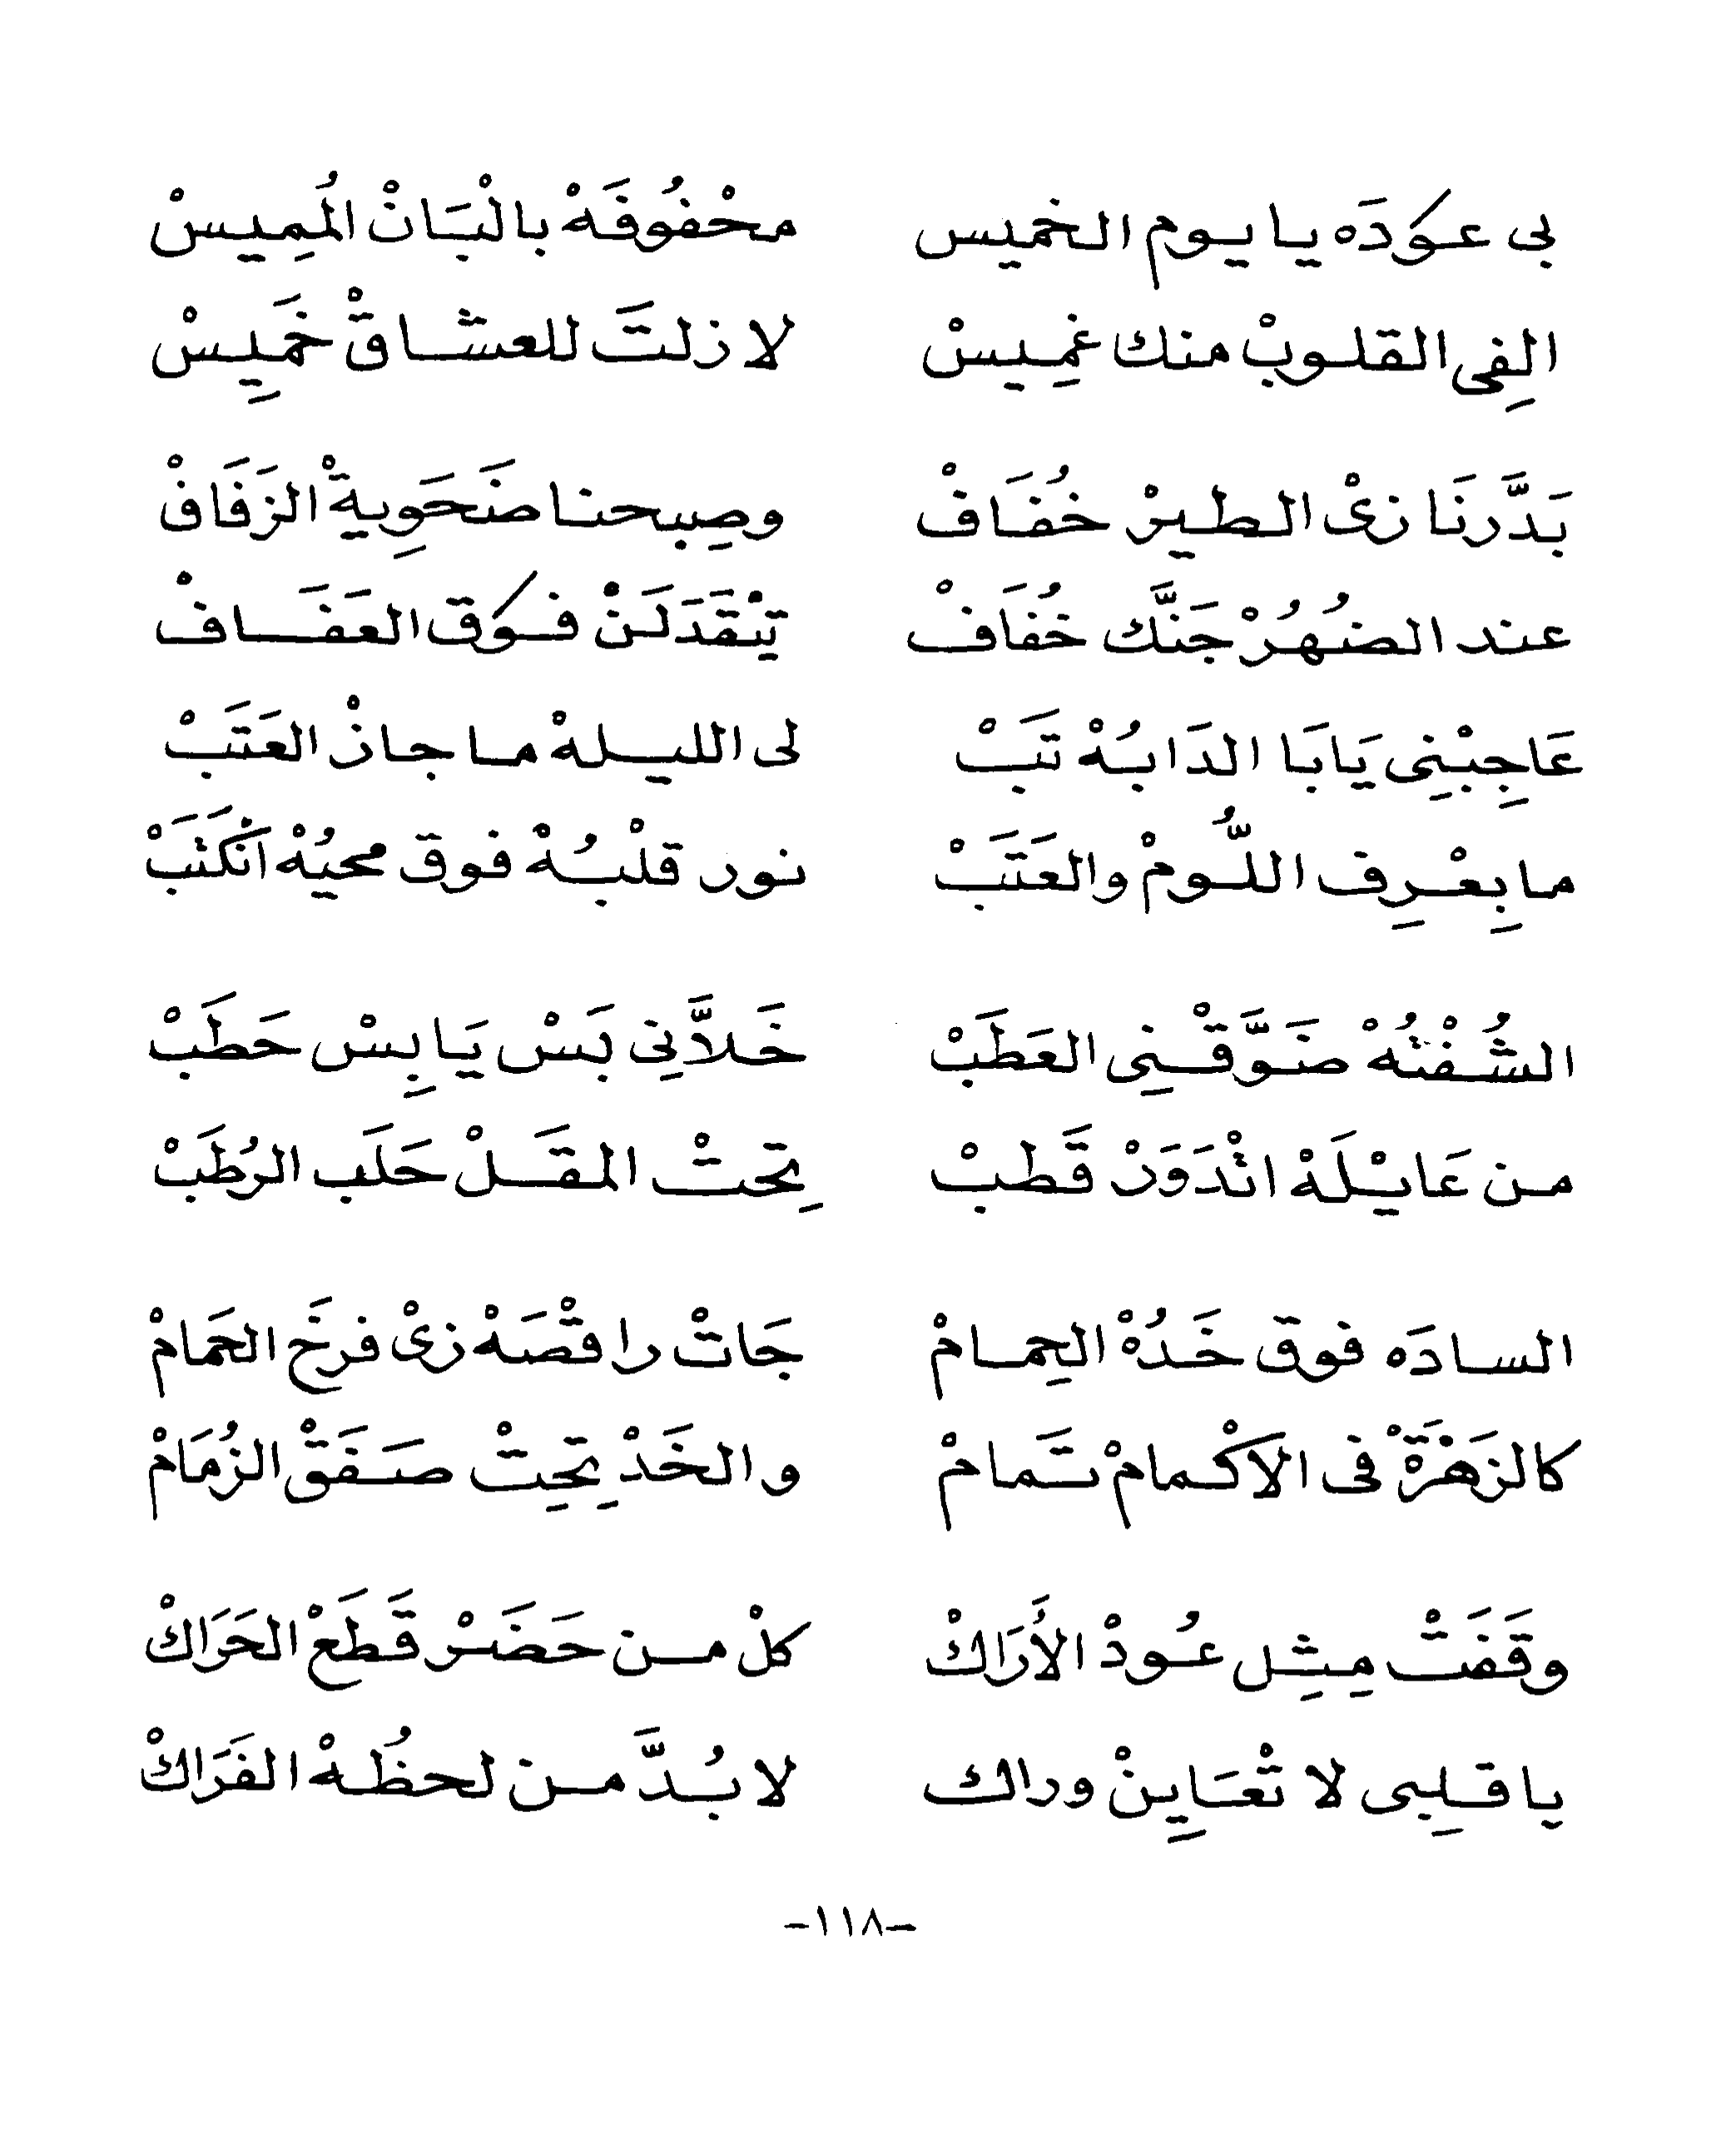 بى عَودَه يا يوم الخميس محْفُوفَهْ بالْبَانْ المُمِيسْ
الِفى القلوبْ منك غمِيسْ لا زلتَ للعشاقْ خَمِيسْ
بَدَّرنَا زىْ الطيرْ خُفَافْ وصِبحنا ضَحَوِيةْ الزَفَافْ
عند الضُهُرْ جَنَّك خُفَافْ تِنْقَدَلَنْ فَوق العَفَافْ
عَاجِبْنِى يَابَا الدَابُهْ تَبْ لى الليلهْ ما جازْ العَتَبْ
ما بِعْرِف اللُّومْ والعَتَبْ نور قلْبُهْ فوق محيُهْ انْكَتَبْ
الشُفْتُهْ ضَوَّقْنِى العَطَبْ خَلاَّنِى بَسْ يَابِسْ حَطَبْ
من عَايْلَهْ اتْدَوَرْ قَطبْ تِحتْ المقَلْ حَلَب الرُطَبْ
السادَه فوق خَدُهْ الحِمامْ جَاتْ راقْصَهْ زىْ فرخَ الحَمامْ
كالزَهْرَةْ فى الاكْمامْ تَمامْ والخَدْ تِحِتْ صَفَقْ الزُمَامْ
وقَفَتْ مِثِل عُودْ الأَرَاكْ كلْ من حَضَرْ قَطَعْ الحَرَاكْ
يا قلِبى لا تْعَايِنْ وراك لا بُدَّ من لحظُهْ الفَرَاكْ
-١١٨-